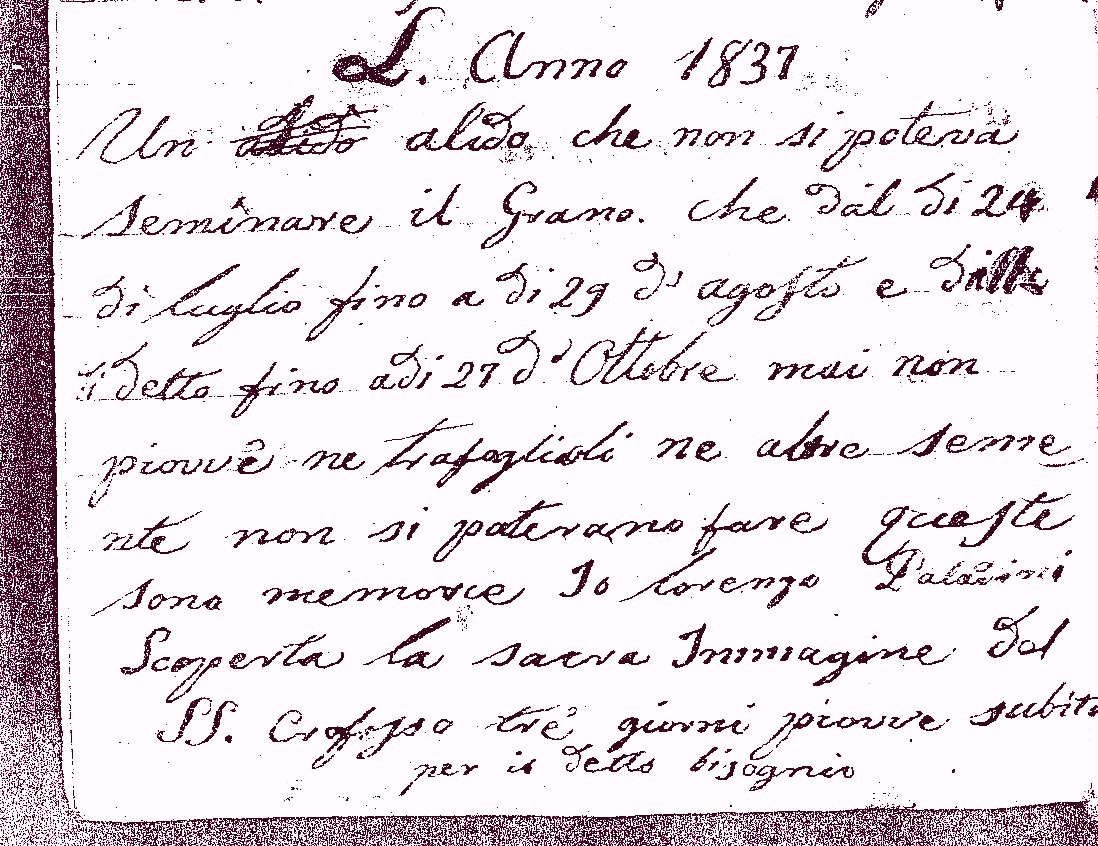 L. Anno 1837
Un alido che non si poteva
seminare il Grano. che dal di 24
di luglio fino a di 29 d' agosto e dalli
detto fino adi 27 d' Ottobre mai non
piovvè ne trafoglioli ne altre seme
nte non si poterano fare queste
sono memorie Io lorenzo Palavini
Scoperta la sacra Immagine del
SS. Crofisso trè giorni piovve subito
per il detto bisognio